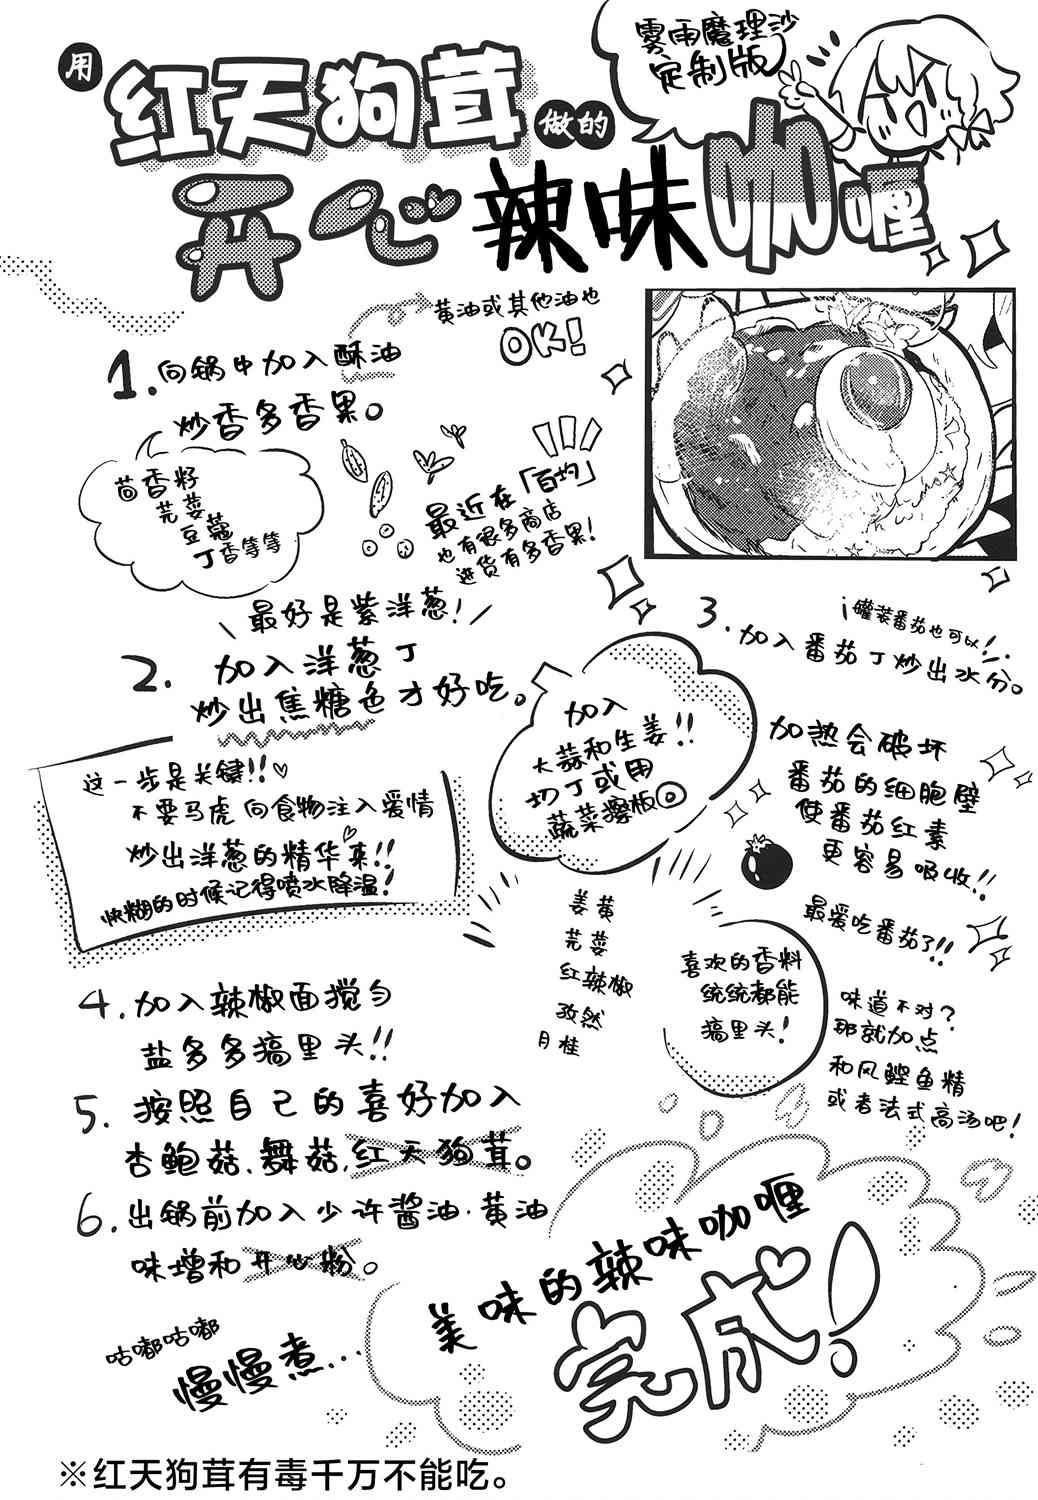 雾雨魔理沙
定制版
用
红天狗茸
做的
开心辣味咖喱
黄油或其他油也
OK!
1.向锅中加入酥油
炒香多香果。
茴香籽
芫荽
豆蔻
丁香等等
最近在「百均」
也有很多商店
进货有多香果!
最好是紫洋葱!
2.加入洋葱丁
炒出焦糖色才好吃。
这一步是关键!!♡
不要马虎向食物注入爱情
炒出洋葱的精华来!!
快糊的时候记得喷水降温!
加入
大蒜和生姜!!
切丁或用
蔬菜擦板◎
¡罐装番茄也可以!
3.加入番茄丁炒出水分。
加热会破坏
番茄的细胞壁
使番茄红素
更容易吸收!!
最爱吃番茄了!!
4.加入辣椒面搅匀
盐多多搞里头!!
姜黄
芫荽
红辣椒
孜然
月桂
喜欢的香料
统统都能
搞里头!
味道不对?
那就加点
和风鲣鱼精
或者法式高汤吧!
5.按照自己的喜好加入
杏鲍菇、舞菇、红天狗茸。
6.出锅前加入少许酱油·黄油
味增和开心粉。
咕嘟咕嘟
慢慢煮...
美味的辣味咖喱
完成!
※红天狗茸有毒千万不能吃。